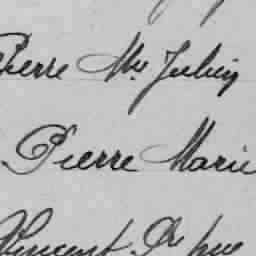 Pierre Mie Julien
Pierre Marie
Vincent